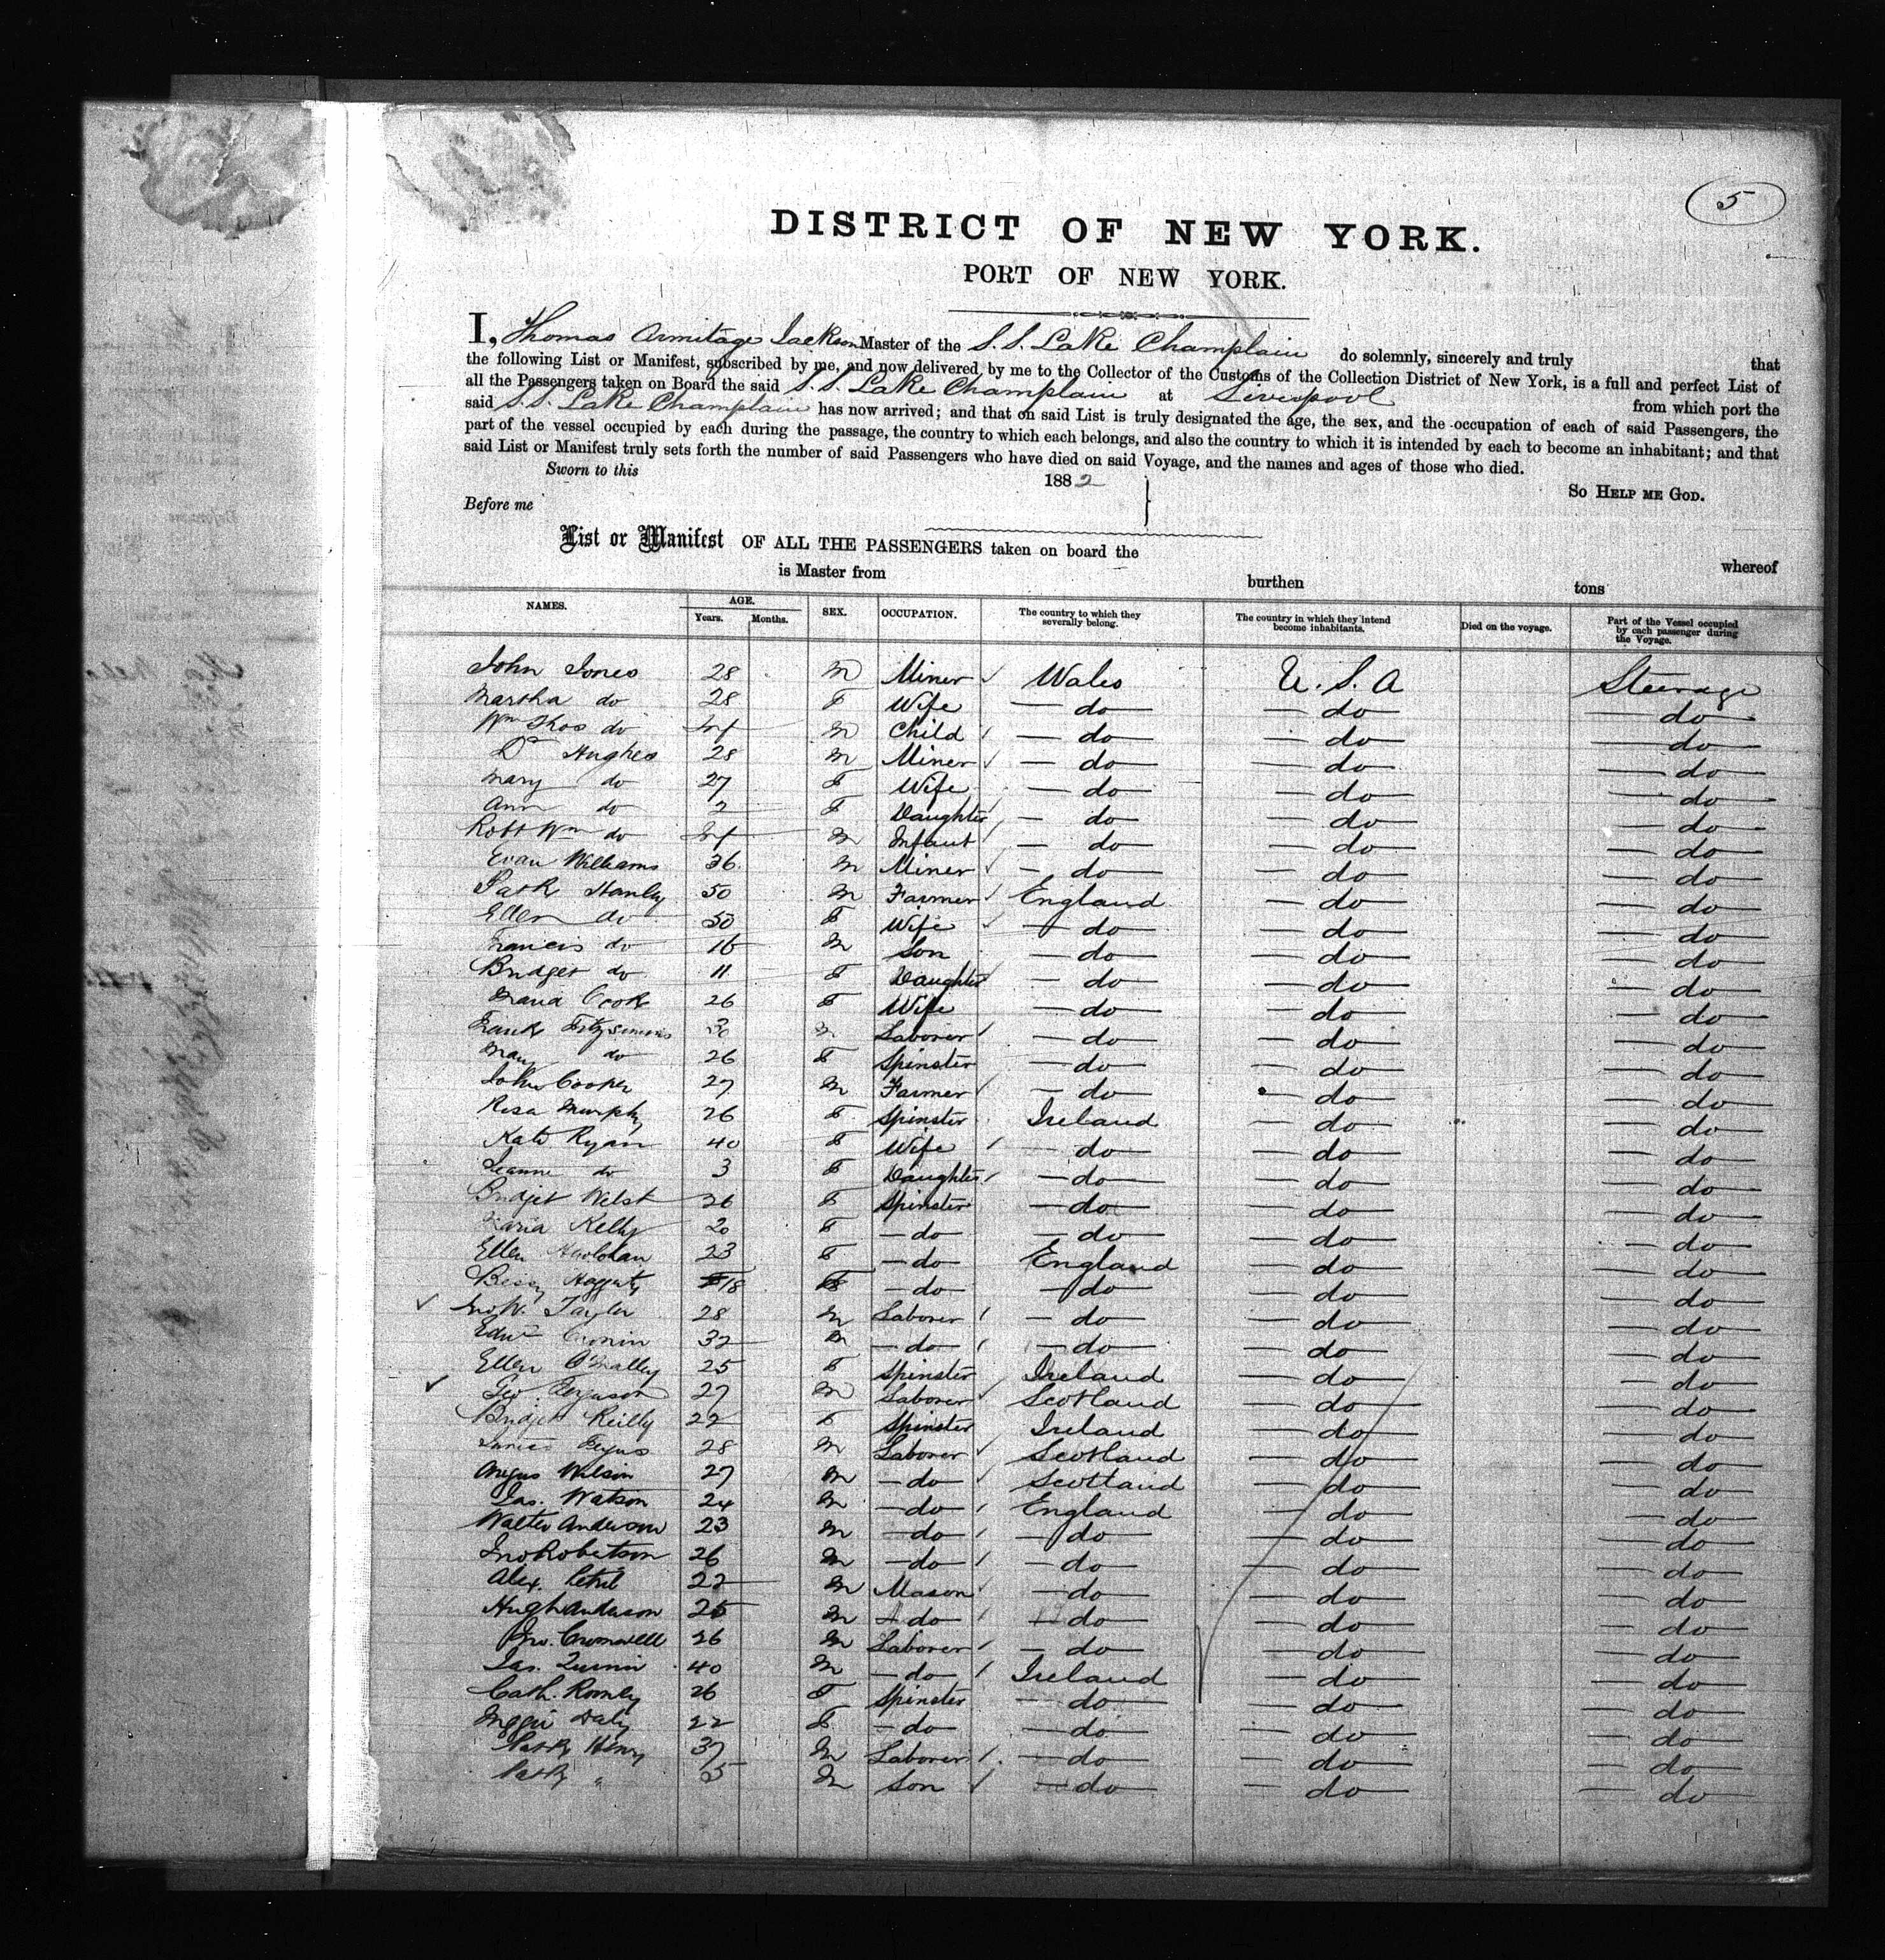 5
DISTRICT OF NEW YORK.
PORT OF NEW YORK.
I, Thomas Armitage Jackson Master of the S.S. Lake Champlain do solemnly, sincerely and truly that
the following List or Manifest, subscribed by me, and now delivered by me to the Collector of the Customs of the Collection District of New York, is a full and perfect List of
all the Passengers taken on Board the said S.S. Lake Champlain at Liverpool from which port the
said S.S. Lake Champlain has now arrived; and that on said List is truly designated the age, the sex, and the occupation of each of said Passengers, the
part of the vessel occupied by each during the passage, the country to which each belongs, and also the country to which it is intended by each to become an inhabitant; and that
said List or Manifest truly sets forth the number of said Passengers who have died on said Voyage, and the names and ages of those who died.
Sworn to this 1882 So HELP ME GOD.
Before me
List or Manifest OF ALL THE PASSENGERS taken on board the whereof
is Master from burthen tons
NAMES. AGE. Years. Months. SEX. OCCUPATION. The country to which they severally belong. The country in which they intend become inhabitants. Died on the voyage. Part of the Vessel occupied by each passenger during the Voyage.
John Jones 28 M Miner Wales U.S.A Steerage
Martha do 28 F Wife do do do
Wm Thos do Inf M Child do do do
Hughes 28 M Miner do do do
Mary do 27 F Wife do do do
Ann do 2 F Daughter do do do
Robt Wm do Inf M Infant do do do
Evan Williams 36 M Miner do do do
Patk Hanly 50 M Farmer England do do
Ellen do 50 F Wife do do do
Francis do 16 M Son do do do
Bridget do 11 F Daughter do do do
Maria Cook 26 F Wife do do do
Frank Fitzsimmons 30 M Laborer do do do
Mary do 26 F Spinster do do do
John Cooper 27 M Farmer do do do
Rosa Murphy 26 F Spinster Ireland do do
Kate Ryan 40 F Wife do do do
do 3 F Daughter do do do
Bridget 26 F Spinster do do do
Maria Kelly 20 F do do do do
Ellen 23 F do England do do
Bessy Haggerty 18 F do do do do
Jno W. Taylor 28 M Laborer do do do
Edwd Cronin 32 M do do do do
Ellen O'Malley 25 F Spinster Ireland do do
Geo. Ferguson 27 M Laborer Scotland do do
Bridget Reilly 22 F Spinster Ireland do do
James 28 M Laborer Scotland do do
Angus Wilson 27 M do Scotland do do
Jas. Watson 24 M do England do do
Walter Anderson 23 M do do do do
Jno Robertson 26 M do do do do
Alex. Petrie 22 M Mason do do do
Hugh Anderson 25 M do do do do
Jno. Cromwell 26 M Laborer do do do
Jas. Quinn 40 M do Ireland do do
Cath. 26 F Spinster do do do
Daly 22 F do do do do
Patk Henry 37 M Laborer do do do
Patk " M Son do do do